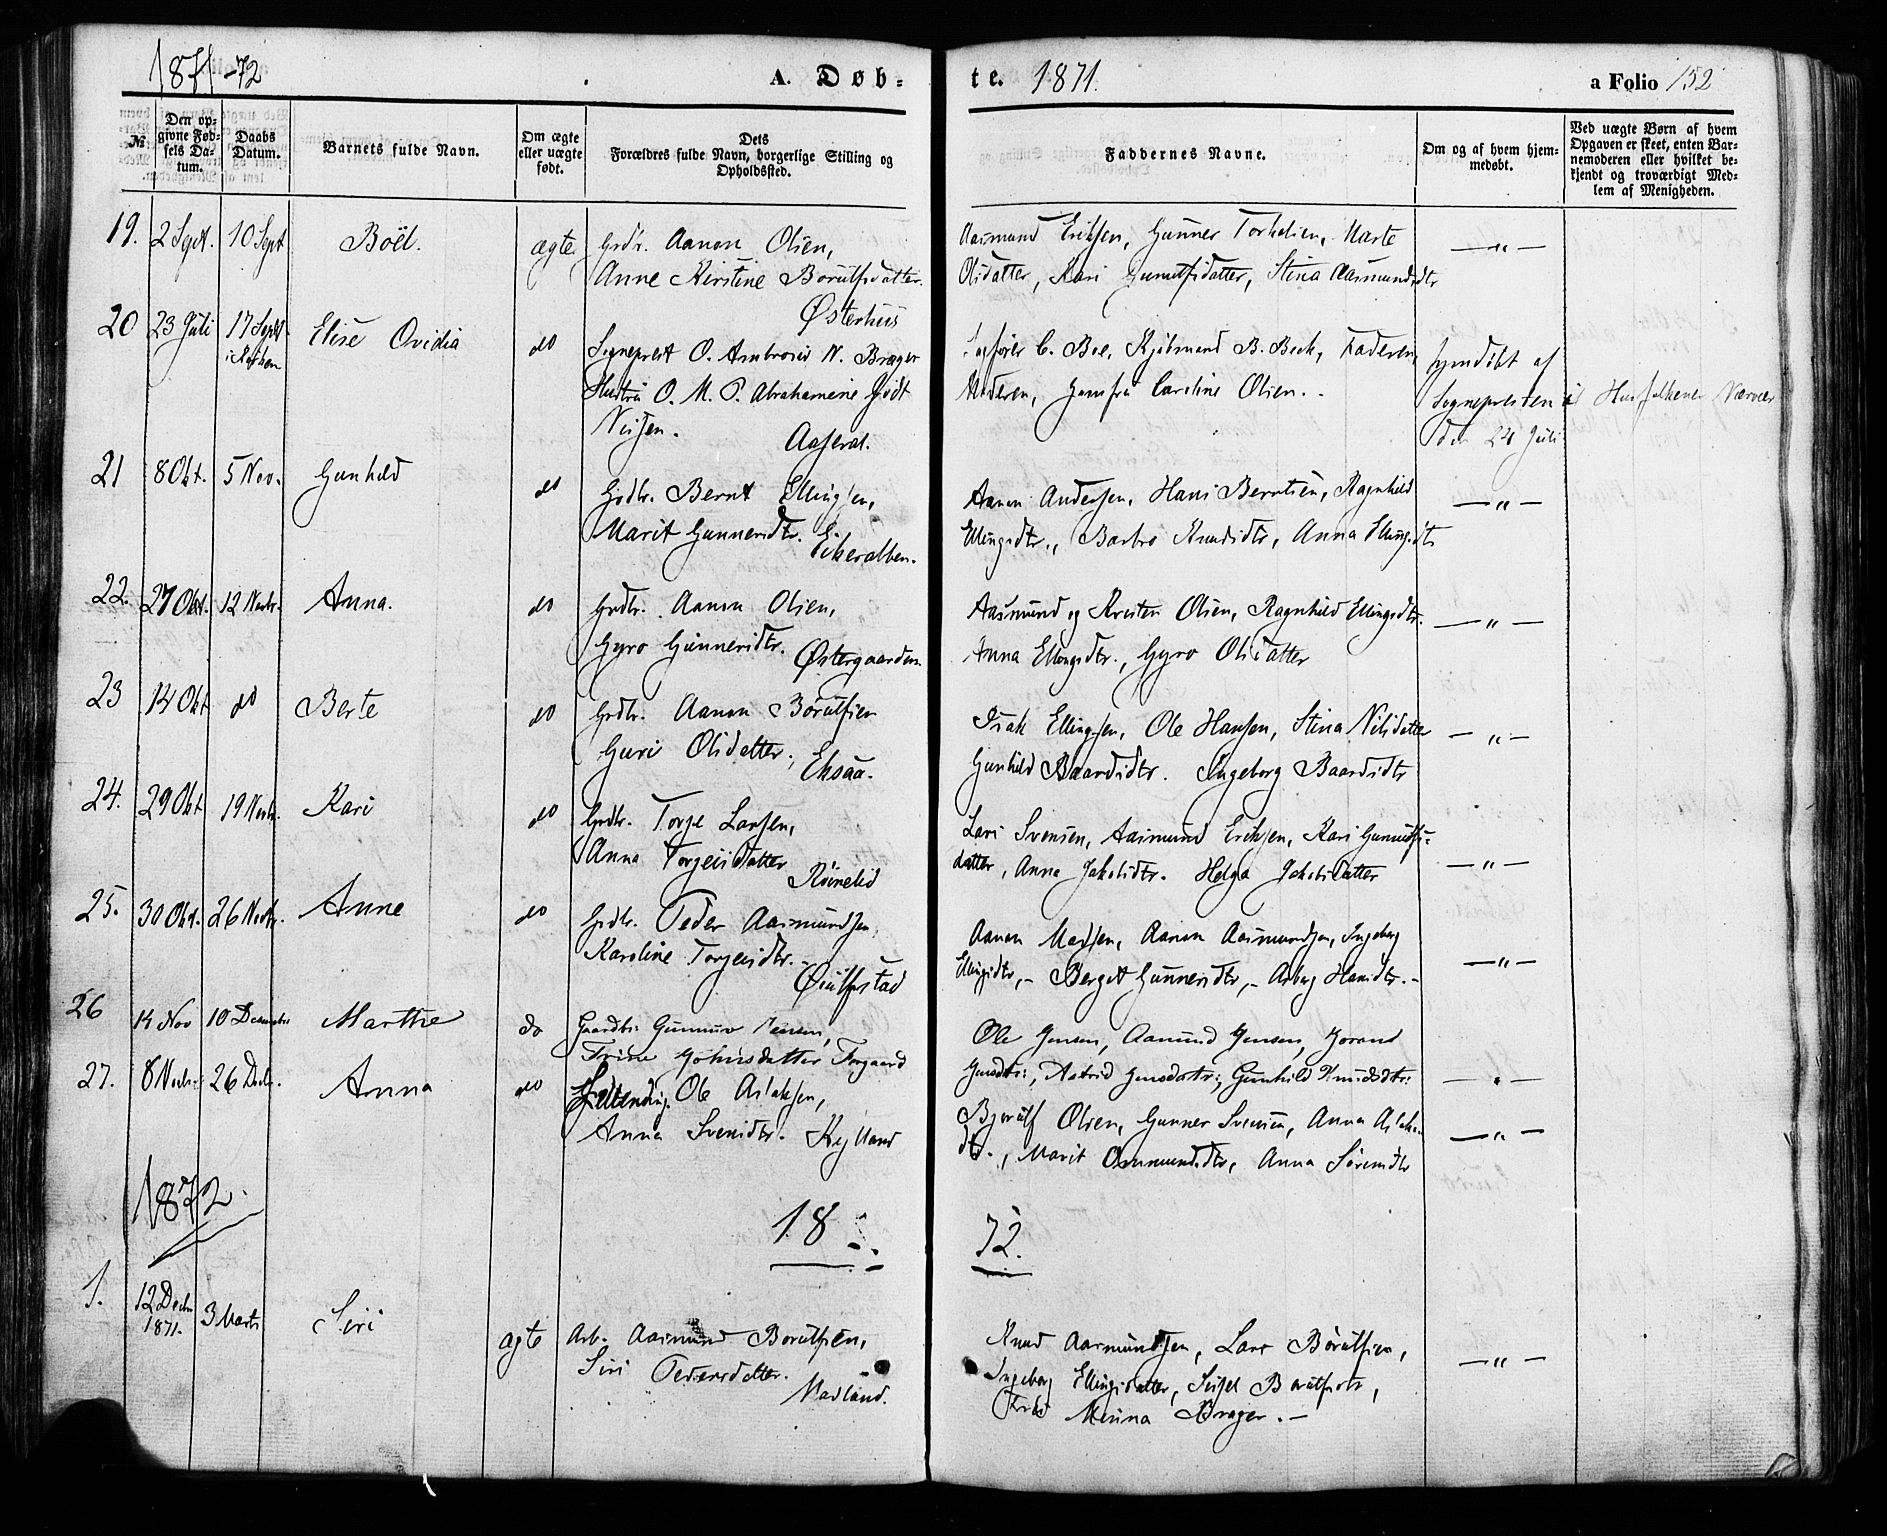 1871-72 A. Døb- te. 1871. a Folio 152
№ Den opgivne Fødsels Datum. Daabs Datum. Barnets fulde Navn. Om ægte eller uægte født. Dets Forældres fulde Navn, borgerlige Stilling og Opholdssted. Faddernes Navne. Om og af hvem hjemmedøbt. Ved uægte Børn af hvem Opgaven er skeet, enten Barnemoderen eller hvilket bekjendt og troværdigt Medlem af Menigheden.
19. 2 Sept. 10 Sept Boël. ægte Grdbr. Aanon Olsen, Aasmund Eriksen, Gunner Torkelsen, Marte — " —
Anne Kirstine Borulfsdatter. Olsdatter, Kari Gunulfsdatter, Stina Aasmundsdtr
Østerhus
20 23 Juli 17 Septbr Elise Ovidia do Sogneprest O. Ambrosius N. Brager C. Boe, Kjøbmand B. Beck, Faderen, hjemdøbt af
Hustru O. M. P. Abrahamine Gjødt Moderen, Jomfru Caroline Olsen. Sognepresten i Husfolkenes Nærvær
Nissen. Aaseral. den 24 Juli
21 8 Okt. 5 Nov. Gunhild do Grdbr. Bernt Ellingsen, Aanon Andersen, Hans Berntsen, Ragnhild — " —
Marit Gunnersdtr. Ellingsdtr., Barbro Knudsdtr, Anna Ellingsdtr
Eikeraasen.
22. 27 Okt. 12 Novbr. Anna. do Grdbr. Aanon Olsen, Aasmund og Kristen Olsen, Ragnhild Ellingsdtr. — " —
Gyro Gunnersdtr. Østergaarden. Anna Ellingsdtr., Gyro Olsdatter
23 14 Okt do Berte do Grdbr. Aanon Børulfsen Isak Ellingsen, Ole Hansen, Stina Nilsdatter — " —
Guri Olsdatter, Eksaa. Gunhild Baardsdtr. Ingeborg Baardsdtr
24. 29 Okt 19 Novbr. Kari do Grdbr. Torje Larsen, Lars Svensen, Aasmund Eriksen, Kari Gunulfs-
Anna Torgeirsdatter datter, Anna Jakobsdtr. Helga Jakobsdatter — " —
Røinelid
25. 30 Okt. 26 Novbr. Anne do Grdbr. Peder Aasmundsen, Aanon Madsen, Aanon Aasmundsen, Ingeborg — " —
Karoline Torgeirsdtr. Ellingsdtr, Berget Gunnersdtr, Asborg Hansdtr.
Øiulfsstad
26 14 Nov 10 December Marthe do Gaardbr: Gunnuv Jensen, Ole Jensen, Aamund Jensen, Jorand
Trine Johnsdatter Torgaard Jensdtr:, Astrid Jensdatr:, Gunhild Knudsdtr: — " —
27. 8 Novbr. 26 Decbr. Anna do Ole Aslaksen, Bjorulf Olsen, Gunner Svensen, Anna Aslaks-
Anna Svensdtr. Kylland dtr., Marit Ommundsdtr, Anna Sørensdtr — " —
1872. 18 72.
1. 12 Decbr 1871. 3 Marts Siri ægte Arb. Aasmund Borulfsen, Knud Aasmundsen, Lars Børulfsen, — " —
Siri Pedersdatter. Ingeborg Ellingsdatter, Sissel Borulfsdtr,
Madland. Minna Brager.